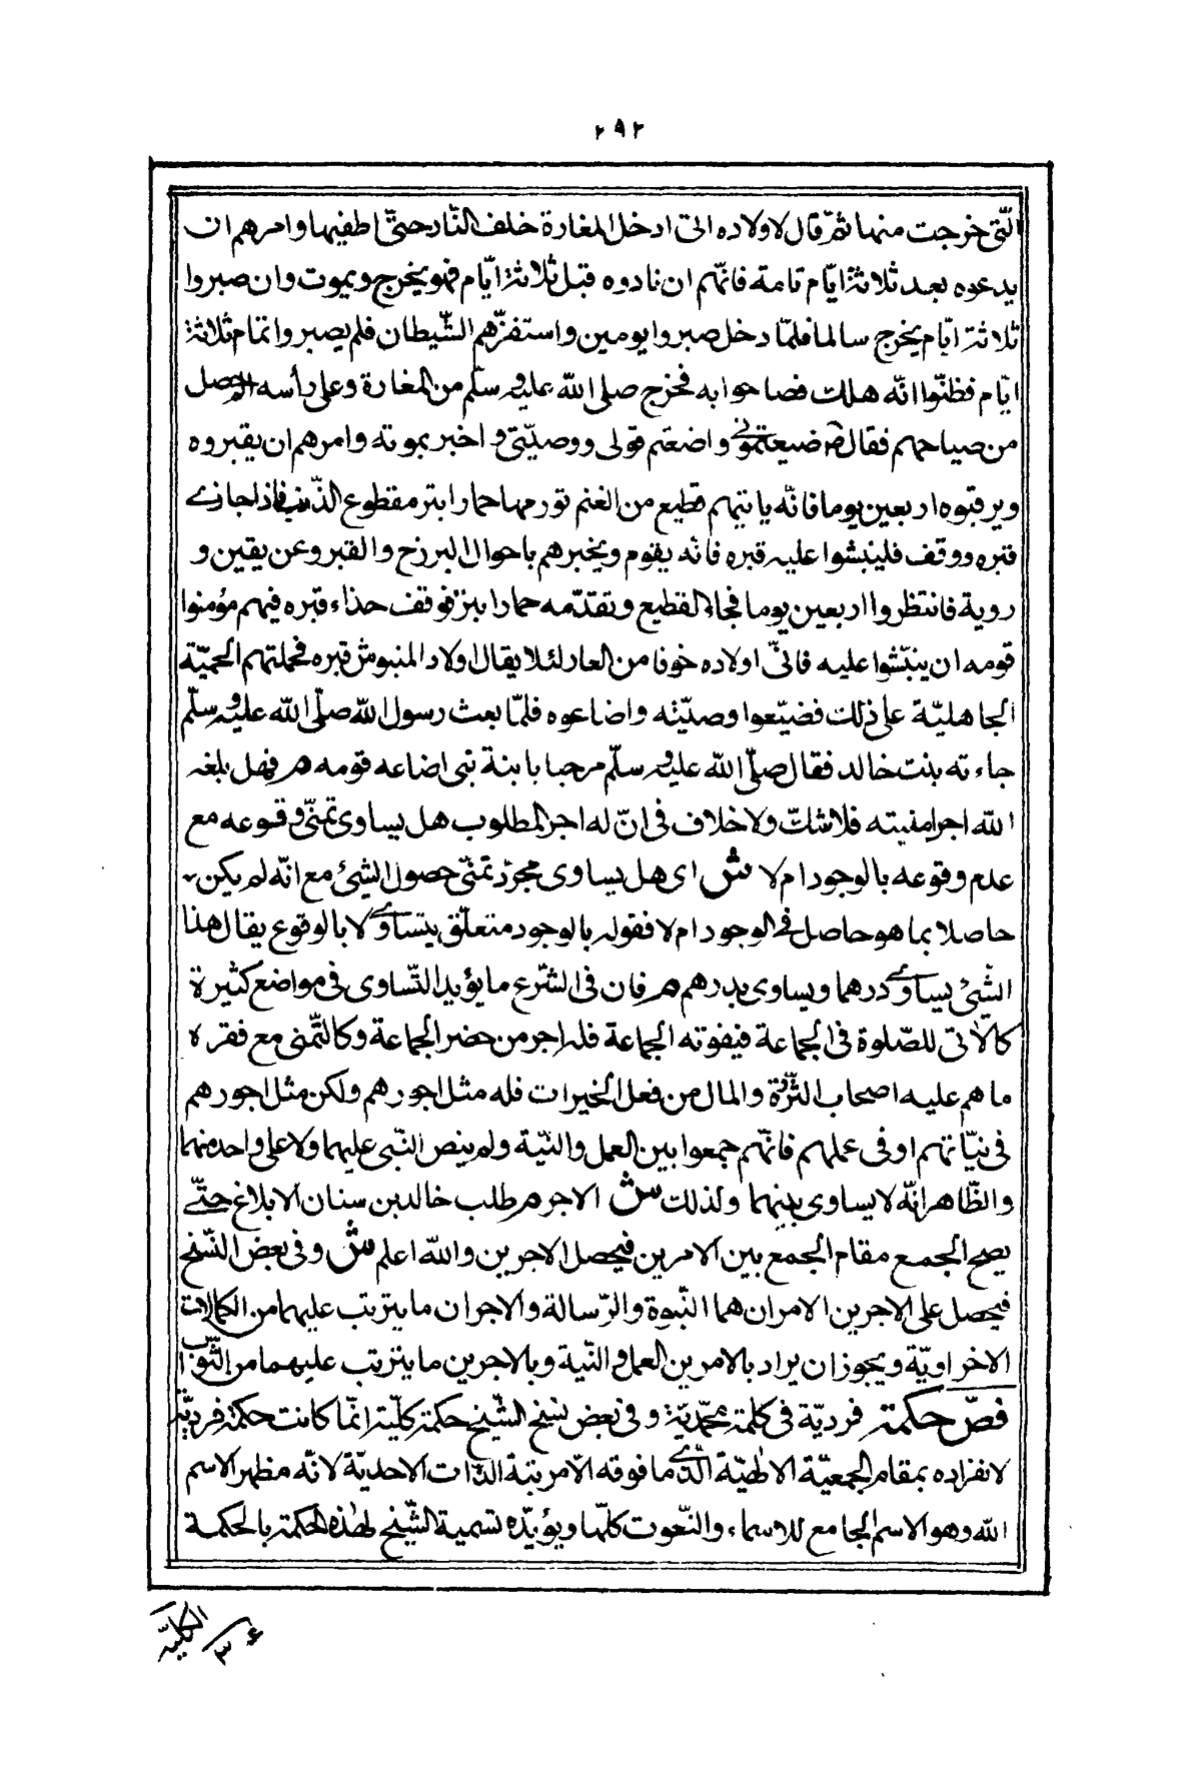 ٢٩٢
الّتى خرجت منها ثمّ قال لاولاده انى ادخل المغارة خلف النّار حتىّ اطفيها وامرهم ان
يدعوه بعد ثلاثة ايّام تامة فانّهم ان نادوه قبل ثلاثة ايّام فهو يخرج ويموت وان صبروا
ثلاثة ايّام يخرج سالما فلمّا دخل صبروا يومين واستفزّهم الشّيطان فلم يصبروا تمام ثلاثة
ايّام فظنّوا انّه هلك فصاحوا به فخرج صلى الله عليه وسلّم من المغارة وعلى رأسه الم حصل
من صياحهم فقال ضيعتمونى واضعتم قولى ووصيّتى واخبر بموته وامرهم ان يقبروه
ويرقبوه اربعين يوما فانّه ياتيهم قطيع من الغنم تقدمها حمار ابتر مقطوع الذّنب فاذا حاذى
قبره ووقف فلينبشوا عليه قبره فانه يقوم ويخبرهم باحوال البرزخ والقبر وعن يقين و
روية فانتظروا اربعين يوما فجاء القطيع وتقدّمه حمار ابتر فوقف حذاء قبره فهم مؤمنوا
قومه ان ينبّشوا عليه فابىّ اولاده خوفا من العار لئلا يقال اولاد المنبوش قبره فحملتهم الحميّة
الجاهليّة على ذلك فضيّعوا وصيّته واضاعوه فلمّا بعث رسول الله صلّى الله عليه وسلّم
جاءته بنت خالد فقال صلّى الله عليه وسلّم مرحبا بابنة نبى اضاعه قومه م فهل بلغه
الله اجر امنيته فلاشكّ ولاخلاف فى انّ له اجر المطلوب هل يساوى تمنّى وقوعه مع
عدم وقوعه بالوجود ام لا ش اى هل يساوى مجرّد تمنّى حصول الشئ مع انّه لم يكن
حاصلا بما هو حاصل فى الوجود ام لا فقوله بالوجود متعلّق بيتساوى لا بالوقوع يقال هذا
الشّئ يساوى درهما ويساوى بدرهم م فان فى الشّرع ما يؤيد التّساوى فى مواضع كثيرة
كالاتى للصّلوة فى الجماعة فيفوته الجماعة فله اجر من حضر الجماعة وكالتّمنى مع فقره
ما هم عليه اصحاب الثّروة والمال من فعل الخيرات فله مثل اجورهم ولكن مثل اجورهم
فى نيّاتهم او فى عملهم فانّهم جمعوا بين العمل والنّية ولم ينص النّبى عليهما ولا على واحد منهما
والظّاهر انّه لا يساوى بينهما ولذلك ش الاجر م طلب خالد بن سنان الابلاغ حتّى
يصح الجمع مقام الجمع بين الامرين فيحصل الاجرين والله اعلم ش وفى بعض النّسخ
فيحصل على الاجرين الامران هما النّبوة والرّسالة والاجران ما يترتب عليهما من الكمالات
الاخراويّة ويجوز ان يراد بالامرين العمل والنّية وبالاجرين ما يترتب عليهما من الثّواب
فصّ حكمة فرديّة فى كلمة محمّديّة وفى بعض نسخ الشّيخ حكمة كليّة انّما كانت حكمة فرديّة
لانفراده بمقام الجمعيّة الالهيّة الّذى مافوقه الاّ مرتبة الذّات الاحديّة لانّه مظهر الاسم
الله وهو الاسم الجامع للاسماء والنّعوت كلّها ويؤيّده تسمية الشّيخ لهذه الحكمة بالحكمة
الكلية